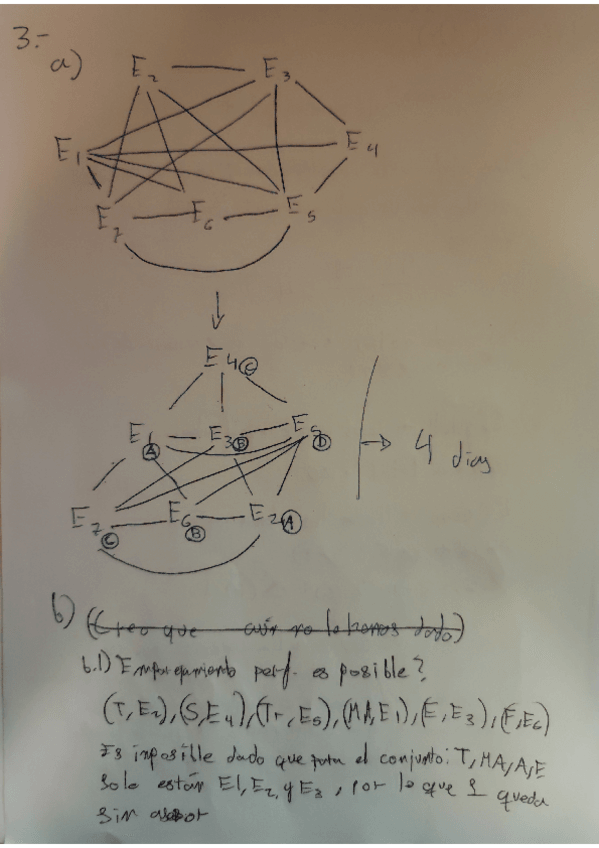 3.-
a)
E2 E3
E1 E4
E7 E6 E5
E4 C
E1 A E3 B E5 D → 4 dias
E7 C E6 B E2 A
b) (Creo que aún no lo hemos dado)
b.1) Emparejamiento perf. es posible?
(T, E2), (S, E4), (Tr, E5), (MA, E1), (E, E3), (F, E6)
Es imposible dado que para el conjunto: T, MA, A, E
solo están E1, E2, y E3, por lo que 1 queda
sin